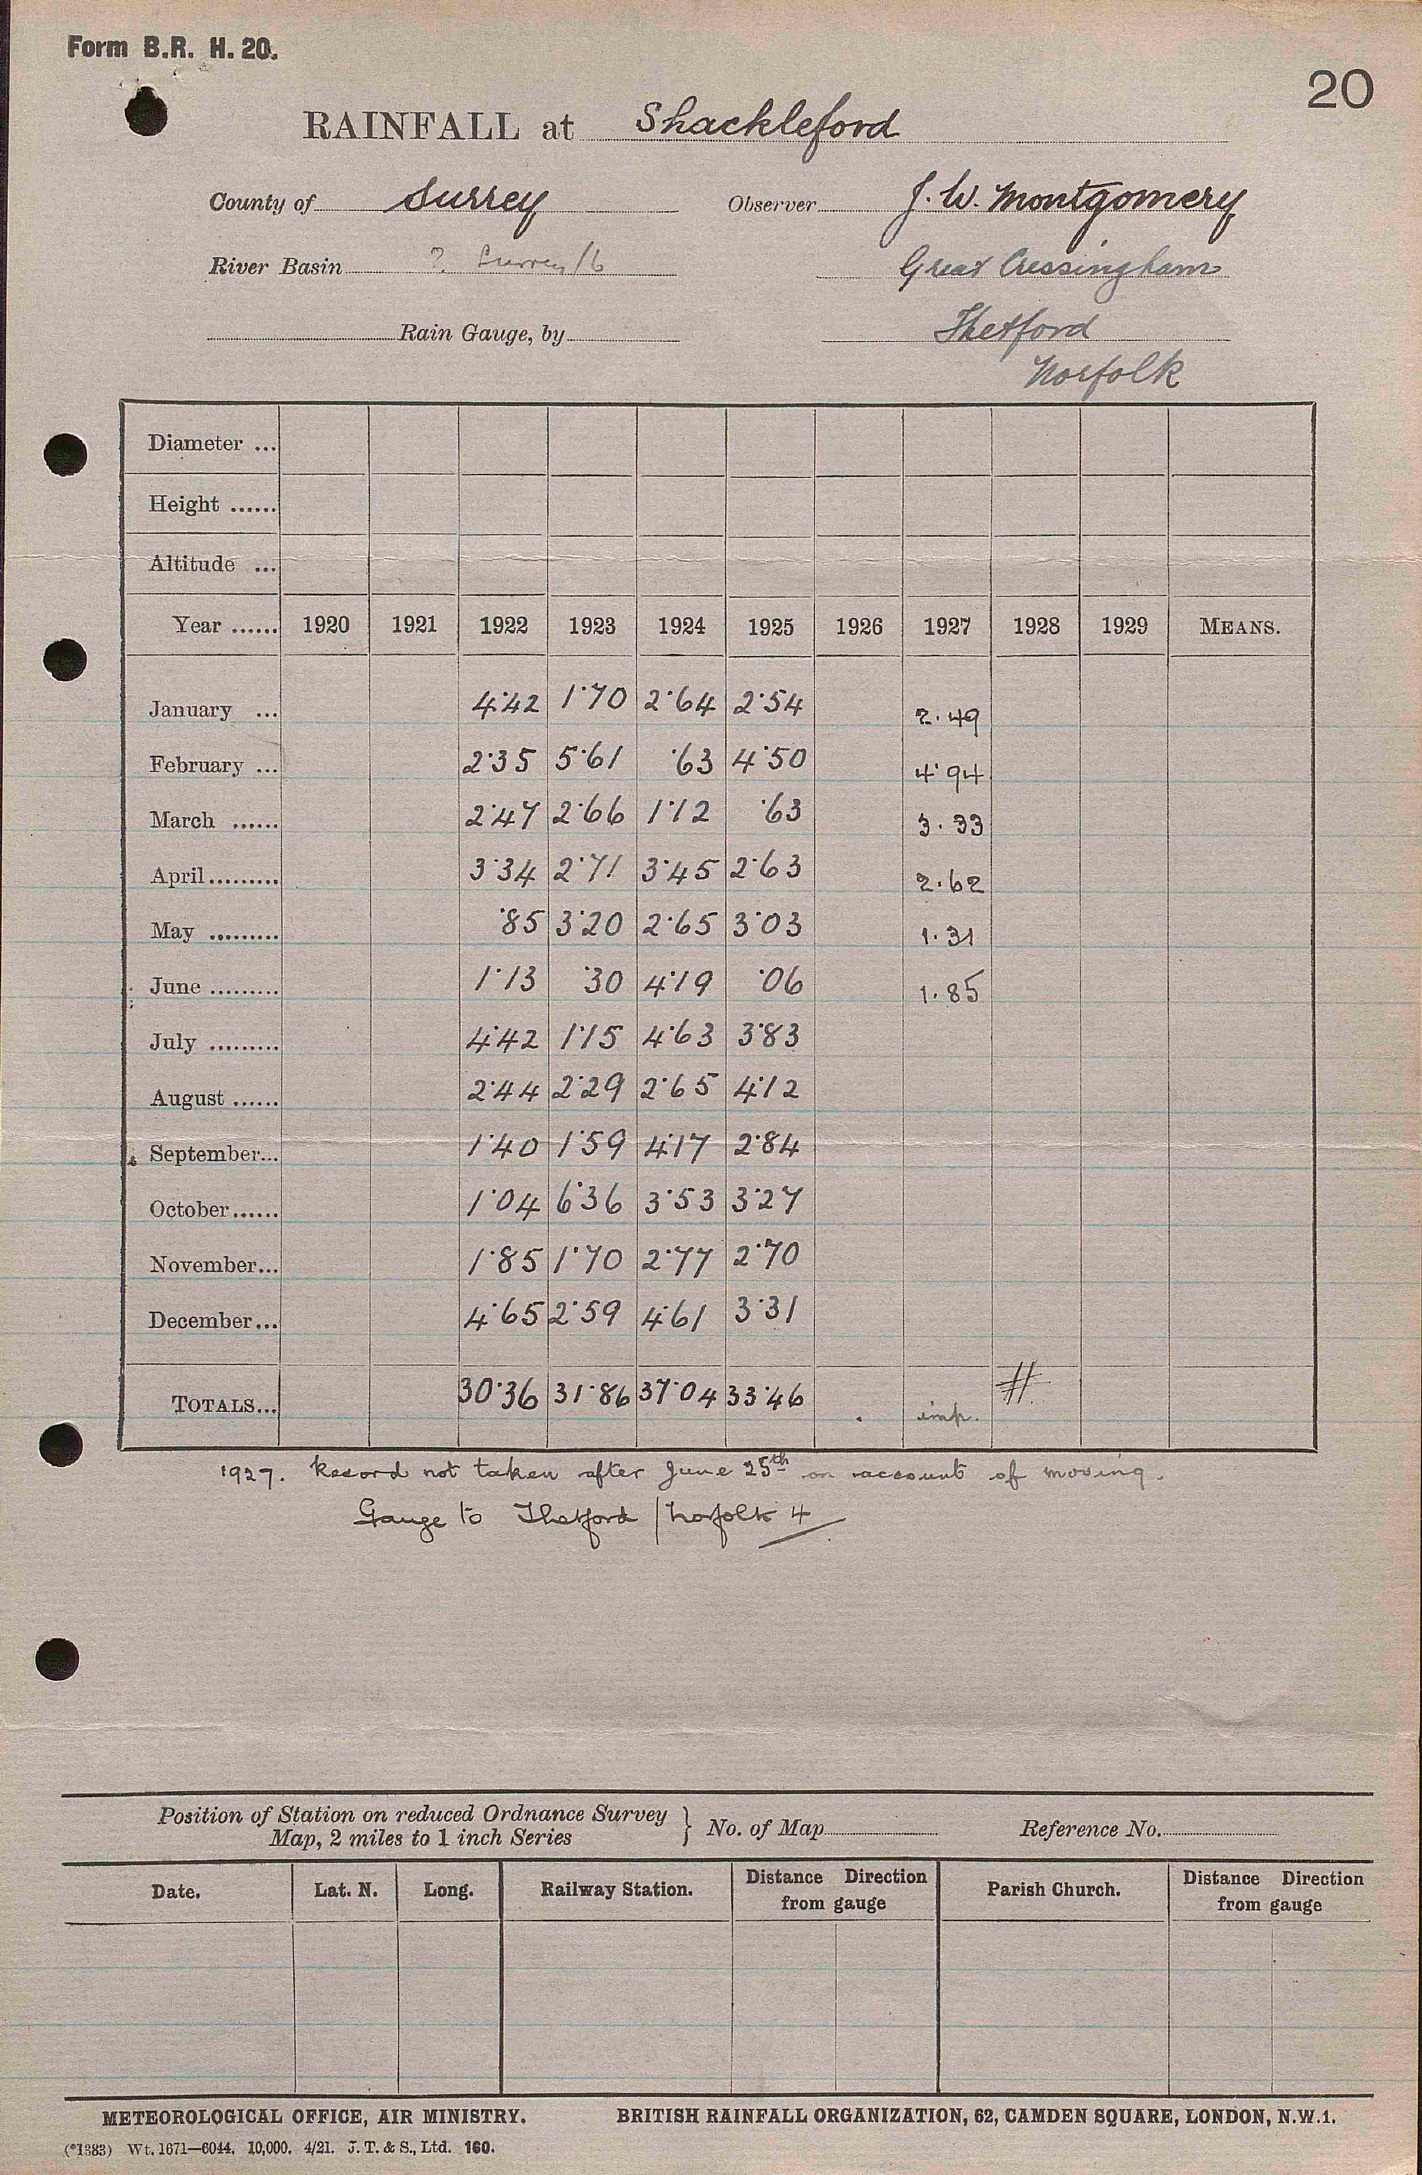 Form B.R. H. 20.
20
RAINFALL at Shackleford
County of Surrey Observer J. W. Montgomery
River Basin ? Surrey/6 Great Cressingham
Rain Gauge, by Thetford
Norfolk
Diameter ...
Height ......
Altitude ...
Year ...... 1920 1921 1922 1923 1924 1925 1926 1927 1928 1929 MEANS.
January ... 4·42 1·70 2·64 2·54 2·49
February ... 2·35 5·61 ·63 4·50 4·94
March ...... 2·47 2·66 1·12 ·63 3·33
April ......... 3·34 2·71 3·45 2·63 2·62
May ......... ·85 3·20 2·65 3·03 1·31
June ......... 1·13 ·30 4·19 ·06 1·85
July ......... 4·42 1·15 4·63 3·83
August ...... 2·44 2·29 2·65 4·12
September... 1·40 1·59 4·17 2·84
October ...... 1·04 6·36 3·53 3·27
November... 1·85 1·70 2·77 2·70
December... 4·65 2·59 4·61 3·31
TOTALS... 30·36 31·86 37·04 33·46 . imp. #
1927. Record not taken after June 25th on account of moving.
Gauge to Thetford / Norfolk 4
Position of Station on reduced Ordnance Survey
Map, 2 miles to 1 inch Series } No. of Map Reference No.
Date. Lat. N. Long. Railway Station. Distance Direction from gauge Parish Church. Distance Direction from gauge
METEOROLOGICAL OFFICE, AIR MINISTRY. BRITISH RAINFALL ORGANIZATION, 62, CAMDEN SQUARE, LONDON, N.W.1.
(*1383) Wt. 1671—6044. 10,000. 4/21. J. T. & S., Ltd. 160.